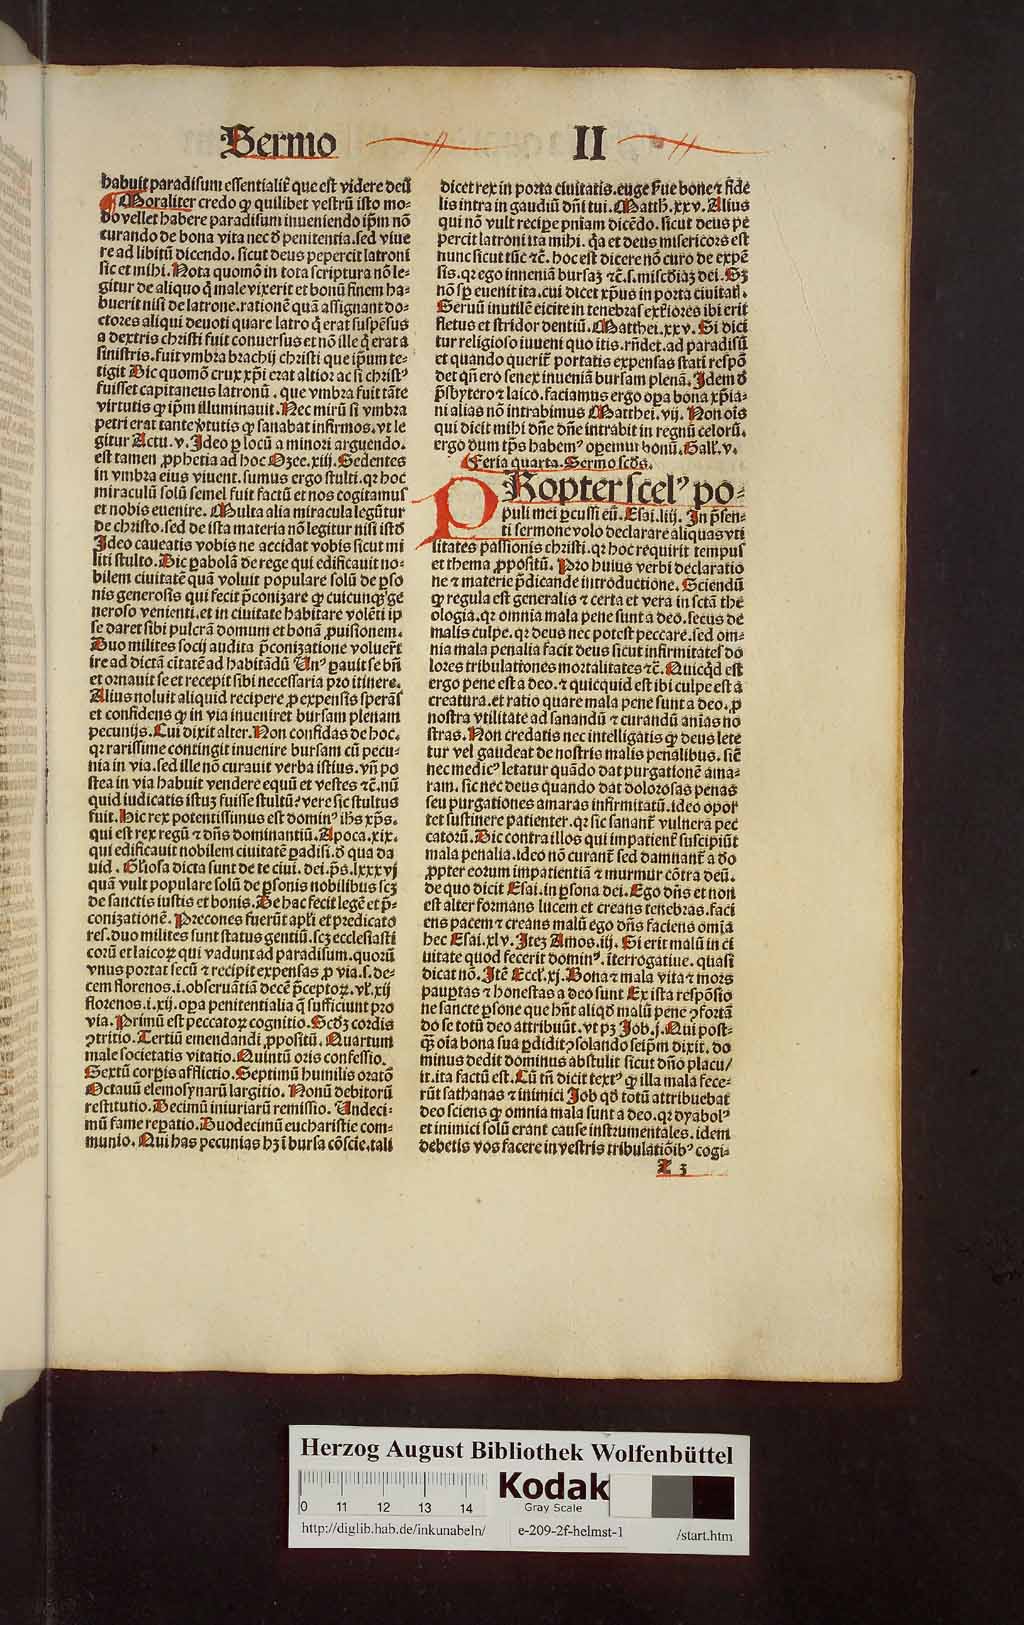 Sermo II
habuit paradisum essentialit̃ que est videre deū
¶ Moraliter credo ꝙ quilibet vestrū isto mo-
do vellet habere paradisum inueniendo ip̄m nō
curando de bona vita nec d̕ penitentia. sed viue
re ad libitū dicendo. sicut deus pepercit latroni
sic et mihi. Nota quomō in tota scriptura nō le-
gitur de aliquo q̇ male vixerit et bonū finem ha-
buerit nisi de latrone. rationē quā assignant do-
ctores aliqui deuoti quare latro q̇ erat suspēsus
a dextris christi fuit conuersus et nō ille q̇ erat a
sinistris. fuit vmbra brachij christi que ip̄um te-
tigit Sic quomō crux xp̄i erat altior ac si christꝰ
fuisset capitaneus latronū. que vmbra fuit tāte
virtutis ꝙ ip̄m illuminauit. Nec mirū si vmbra
petri erat tante v̕tutis ꝙ sanabat infirmos. vt le
gitur Actu. v. Ideo ꝑ locū a minori arguendo.
est tamen ꝓphetia ad hoc Ozee. xiij. Sedentes
in vmbra eius viuent. sumus ergo stulti. qꝛ hoc
miraculū solū semel fuit factū et nos cogitamus
et nobis euenire. Multa alia miracula legūtur
de christo. sed de ista materia nō legitur nisi istd̕
Ideo caueatis vobis ne accidat vobis sicut mi
liti stulto. Sic ꝑabolā de rege qui edificauit no-
bilem ciuitatē quā voluit populare solū de ꝑso
nis generosis qui fecit p̄conizare ꝙ cuicunqꝫ ge
neroso venienti. et in ciuitate habitare volēti ip
se daret sibi pulcrā domum et bonā ꝓuisionem.
Duo milites socij audita p̄conizatione voluer̄t
ire ad dictā c̄itatē ad habitādū Unꝰ ꝑauit se bn̄
et ornauit se et recepit sibi necessaria pro itinere.
Alius noluit aliquid recipere ꝓ expensis sperās
et confidens ꝙ in via inueniret bursam plenam
pecunijs. Cui dixit alter. Non confidas de hoc.
qꝛ rarissime contingit inuenire bursam cū pecu-
nia in via. sed ille nō curauit verba istius. vn̄ po
stea in via habuit vendere equū et vestes ⁊c̄. nū
quid iudicatis istuꝫ fuisse stultū? vere sic stultus
fuit. Hic rex potentissimus est dominꝰ ihs xp̄s.
qui est rex regū ⁊ dn̄s dominantiū. Apoca. xix.
qui edificauit nobilem ciuitatē ꝑadisi. d̕ qua da
uid. Gl̄iosa dicta sunt de te ciui. dei. ps̄. lxxxvj
quā vult populare solū de ꝑsonis nobilibus scꝫ
de sanctis iustis et bonis. De hac fecit legē et p̄-
conizationē. Precones fuerūt apl̄i et predicato
res. duo milites sunt status gentiū. scꝫ ecclesiasti
corū et laicoꝝ qui vadunt ad paradisum. quorū
vnus portat secū ⁊ recipit expensas ꝓ via. s. de-
cem florenos. i. obseruātiā decē p̄ceptoꝝ. vl̕. xij
florenos. i. xij. opa penitentialia q̄ sufficiunt pro
via. Primū est peccatoꝝ cognitio. Scd̕ꝫ cordis
ꝯtritio. Tertiū emendandi ꝓpositū. Quartum
male societatis vitatio. Quintū oris confessio.
Sextū corꝑis afflictio. Septimū humilis oratō
Octauū elemosynarū largitio. Nonū debitorū
restitutio. Decimū iniuriarū remissio. Undeci-
mū fame reꝑatio. Duodecimū eucharistie com-
munio. Qui has pecunias hꝫ ī bursa cōscie. tali
dicet rex in porta ciuitatis. euge s̕ue bone ⁊ fide
lis intra in gaudiū dn̄i tui. Matth. xxv. Alius
qui nō vult reciꝑe pniam dicēdo. sicut deus pe
percit latroni ita mihi. q̇a et deus misericors est
nunc sicut tūc ⁊c̄. hoc est dicere nō curo de expē
sis. qꝛ ego inueniā bursaꝫ ⁊c̄. s. misc̄diaꝫ dei. Sꝫ
nō sꝑ euenit ita. cui dicet xp̄us in porta ciuitatꝭ.
Seruū inutilē eicite in tenebras ext̕iores ibi erit
fletus et stridor dentiū. Matthei. xxv. Si dici
tur religioso iuueni quo itis. rn̄det. ad paradisū
et quando querit̕ portatis expensas stati respō
det qn̄ ero senex inueniā bursam plenā. Idem d̕
p̄sbytero ⁊ laico. faciamus ergo oꝑa bona xp̄ia-
ni alias nō intrabimus Matthei. vij. Non ois
qui dicit mihi dn̄e dn̄e intrabit in regnū celorū.
ergo dum tp̄s habemꝰ oꝑemur bonū. Gall̕. v.
Feria quarta. Sermo scd̕s.
PRopter scelꝰ po-
puli mei ꝑcussi eū. Esai. liij. In p̄sen-
ti sermone volo declarare aliquas vti
litates passionis christi. qꝛ hoc requirit tempus
et thema ꝓpositū. Pro huius verbi declaratio
ne ⁊ materie p̄dicande introductione. Sciendū
ꝙ regula est generalis ⁊ certa et vera in sctā the
ologia. qꝛ omnia mala pene sunt a deo. secus de
malis culpe. qꝛ deus nec potest peccare. sed om-
nia mala penalia facit deus sicut infirmitates do
lores tribulationes mortalitates ⁊c̄. Quicq̇d est
ergo pene est a deo. ⁊ quicquid est ibi culpe est a
creatura. et ratio quare mala pene sunt a deo. ꝓ
nostra vtilitate ad sanandū ⁊ curandū anīas no
stras. Non credatis nec intelligatis ꝙ deus lete
tur vel gaudeat de nostris malis penalibus. sic̄
nec medicꝰ letatur quādo dat purgationē ama-
ram. sic nec deus quando dat dolorosas penas
seu purgationes amaras infirmitatū. ideo opor
tet sustinere patienter. qꝛ sic sanant̕ vulnera pec
catorū. Sic contra illos qui impatient̕ suscipiūt
mala penalia. ideo nō curant̕ sed damnant̕ a do
ꝓpter eorum impatientiā ⁊ murmur cōtra deū.
de quo dicit Esai. in ꝑsona dei. Ego dn̄s et non
est alter formans lucem et creans tenebras. faci
ens pacem ⁊ creans malū ego dn̄s faciens omīa
hec Esai. xlv. Iteꝫ Amos. iij. Si erit malū in ci
uitate quod fecerit dominꝰ. īterrogatiue. quasi
dicat nō. Itē Eccl̕. xj. Bona ⁊ mala vita ⁊ mors
pauꝑtas ⁊ honestas a deo sunt Ex ista respōsio
ne sancte ꝑsone que hn̄t aliqd̕ malū pene ꝯfortā
do se totū deo attribuūt. vt pꝫ Job. j. Qui post-
ꝙ̄ oīa bona sua ꝑdidit ꝯsolando seip̄m dixit. do
minus dedit dominus abstulit sicut dn̄o placu/
it. ita factū est. Cū tn̄ dicit textꝰ ꝙ illa mala fece-
rūt sathanas ⁊ inimici Job qd̕ totū attribuebat
deo sciens ꝙ omnia mala sunt a deo. qꝛ dyabolꝰ
et inimici solū erant cause instrumentales. idem
debetis vos facere in vestris tribulatiōibꝰ cogi-
Z 3
Herzog August Bibliothek Wolfenbüttel
0 11 12 13 14
Kodak
Gray Scale
http://diglib.hab.de/inkunabeln/ e-209-2f-helmst-1 /start.htm